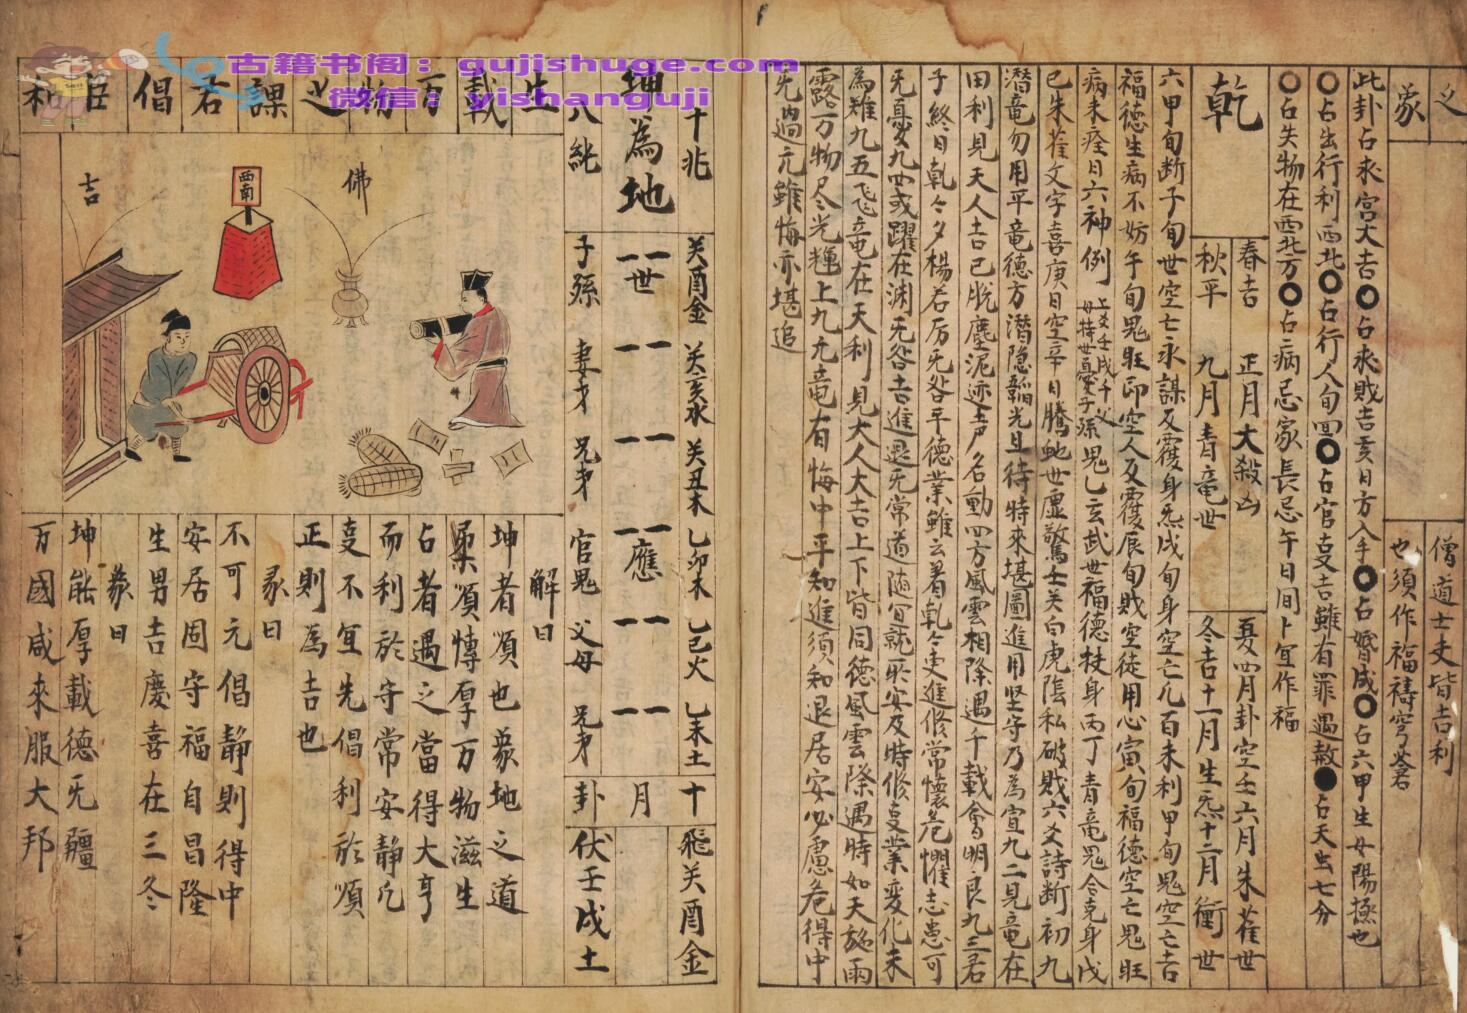 古籍书阁：gujishuge.com
微信：yishanguji
义
象
僧道士吏皆吉利
也須作福禱穹蒼
此卦占求官大吉○占求財吉亥日方入手○占婚成○占六甲生女陽極也
○占出行利西北○占行人旬回○占官事吉雖有罪遇赦●占天虫七分
○占失物在西北方○占病忌家長忌午日間卜宜作福
乾
春吉 正月大殺凶 夏四月卦空壬六月朱雀世
秋平 九月青竜世 冬吉十一月生炁十二月衝世
六甲旬断子旬世空亡永謀反覆身炁戌旬身空亡凡百未利甲旬鬼空亡吉
福德生病不妨午旬鬼旺卯空人反覆辰旬財空徒用心寅旬福德空亡鬼旺
病未痊日六神例 上爻壬戌千父母持世憂子孫 鬼乙玄武世福德扶身丙丁青竜鬼令克身戊
已朱雀文字喜庚日空辛日騰蛇世虛驚壬关白虎陰私破財六爻詩断初九
潛竜勿用平竜德方潛隐韜光且待時來堪圖進用坚守乃為宜九二見竜在
田利見天人吉已脫塵泥迹声名動四方風雲相際遇千載會明良九三君
子終日乹々夕楊若厉旡咎平德業雖云著乹々更進修常懷危懼志患可
旡憂九四或躍在渊旡咎吉進退旡常道随宜就所安及時修变業変化未
為难九五飞竜在天利見大人大吉上下皆同德風雲際遇時如天施雨
露万物尽光輝上九亢竜有悔中平知進須知退居安必慮危得中
旡過亢雖悔亦堪追
坤為地
十兆
八純
关酉金 关亥水 关丑木 乙卯木 乙巳火 乙未土
世 應
子孫 妻才 兄弟 官鬼 父母 兄弟
十
月
卦
飛关酉金
伏壬戌土
生載万物之課君倡臣和
佛
西南
吉
解曰
坤者順也象地之道
柔順慱厚万物滋生
占者遇之當得大亨
而利於守常安静凡
事不宜先倡利於順
正則為吉也
彖曰
不可元倡静則得中
安居固守福自昌隆
生男吉慶喜在三冬
象曰
坤能厚載德旡疆
万國咸來服大邦